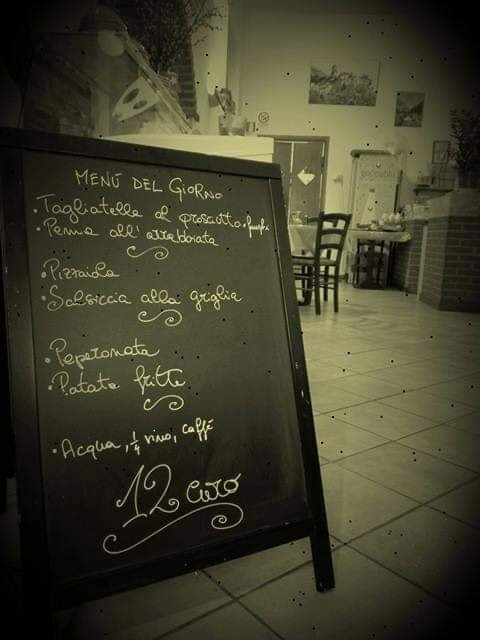 MENÚ DEL GIORNO
• Tagliatelle al prosciutto e funghi
• Penne all'arrabbiata
• Pizzaiola
• Salsiccia alla griglia
• Peperonata
• Patate fritte
• Acqua, 1/4 vino, caffé
12 euro